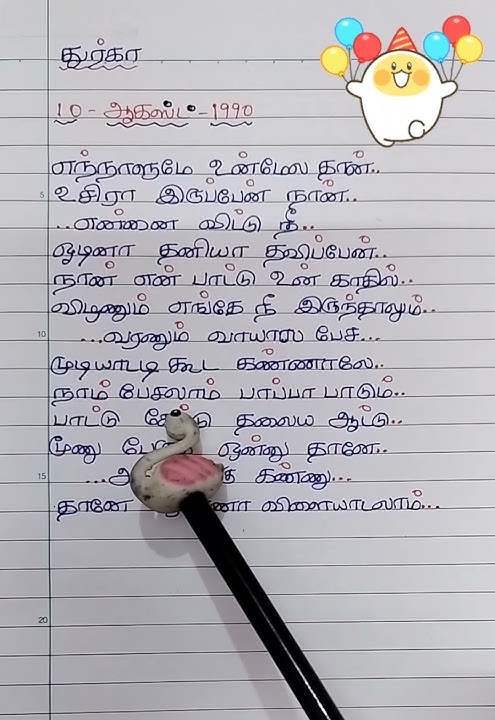 துர்கா
10 - ஆகஸ்ட் - 1990
எந்நாளுமே உன்மேல தான்..
5
உசிரா இருப்பேன் நான்..
..என்னை விட்டு நீ..
ஓடினா தனியா தவிப்பேன்..
நான் என் பாட்டு உன் காதில்..
விழணும் எங்கே நீ இருந்தாலும்..
10
...வரணும் வாயால பேச...
முடியாட்டி கூட கண்ணாலே..
நாம் பேசலாம் பாப்பா பாடும்..
பாட்டு கேட்டு தலைய ஆட்டு..
மூணு ஒண்ணு தானே..
15
கண்ணு...
தானே விளையாடலாம்...
20